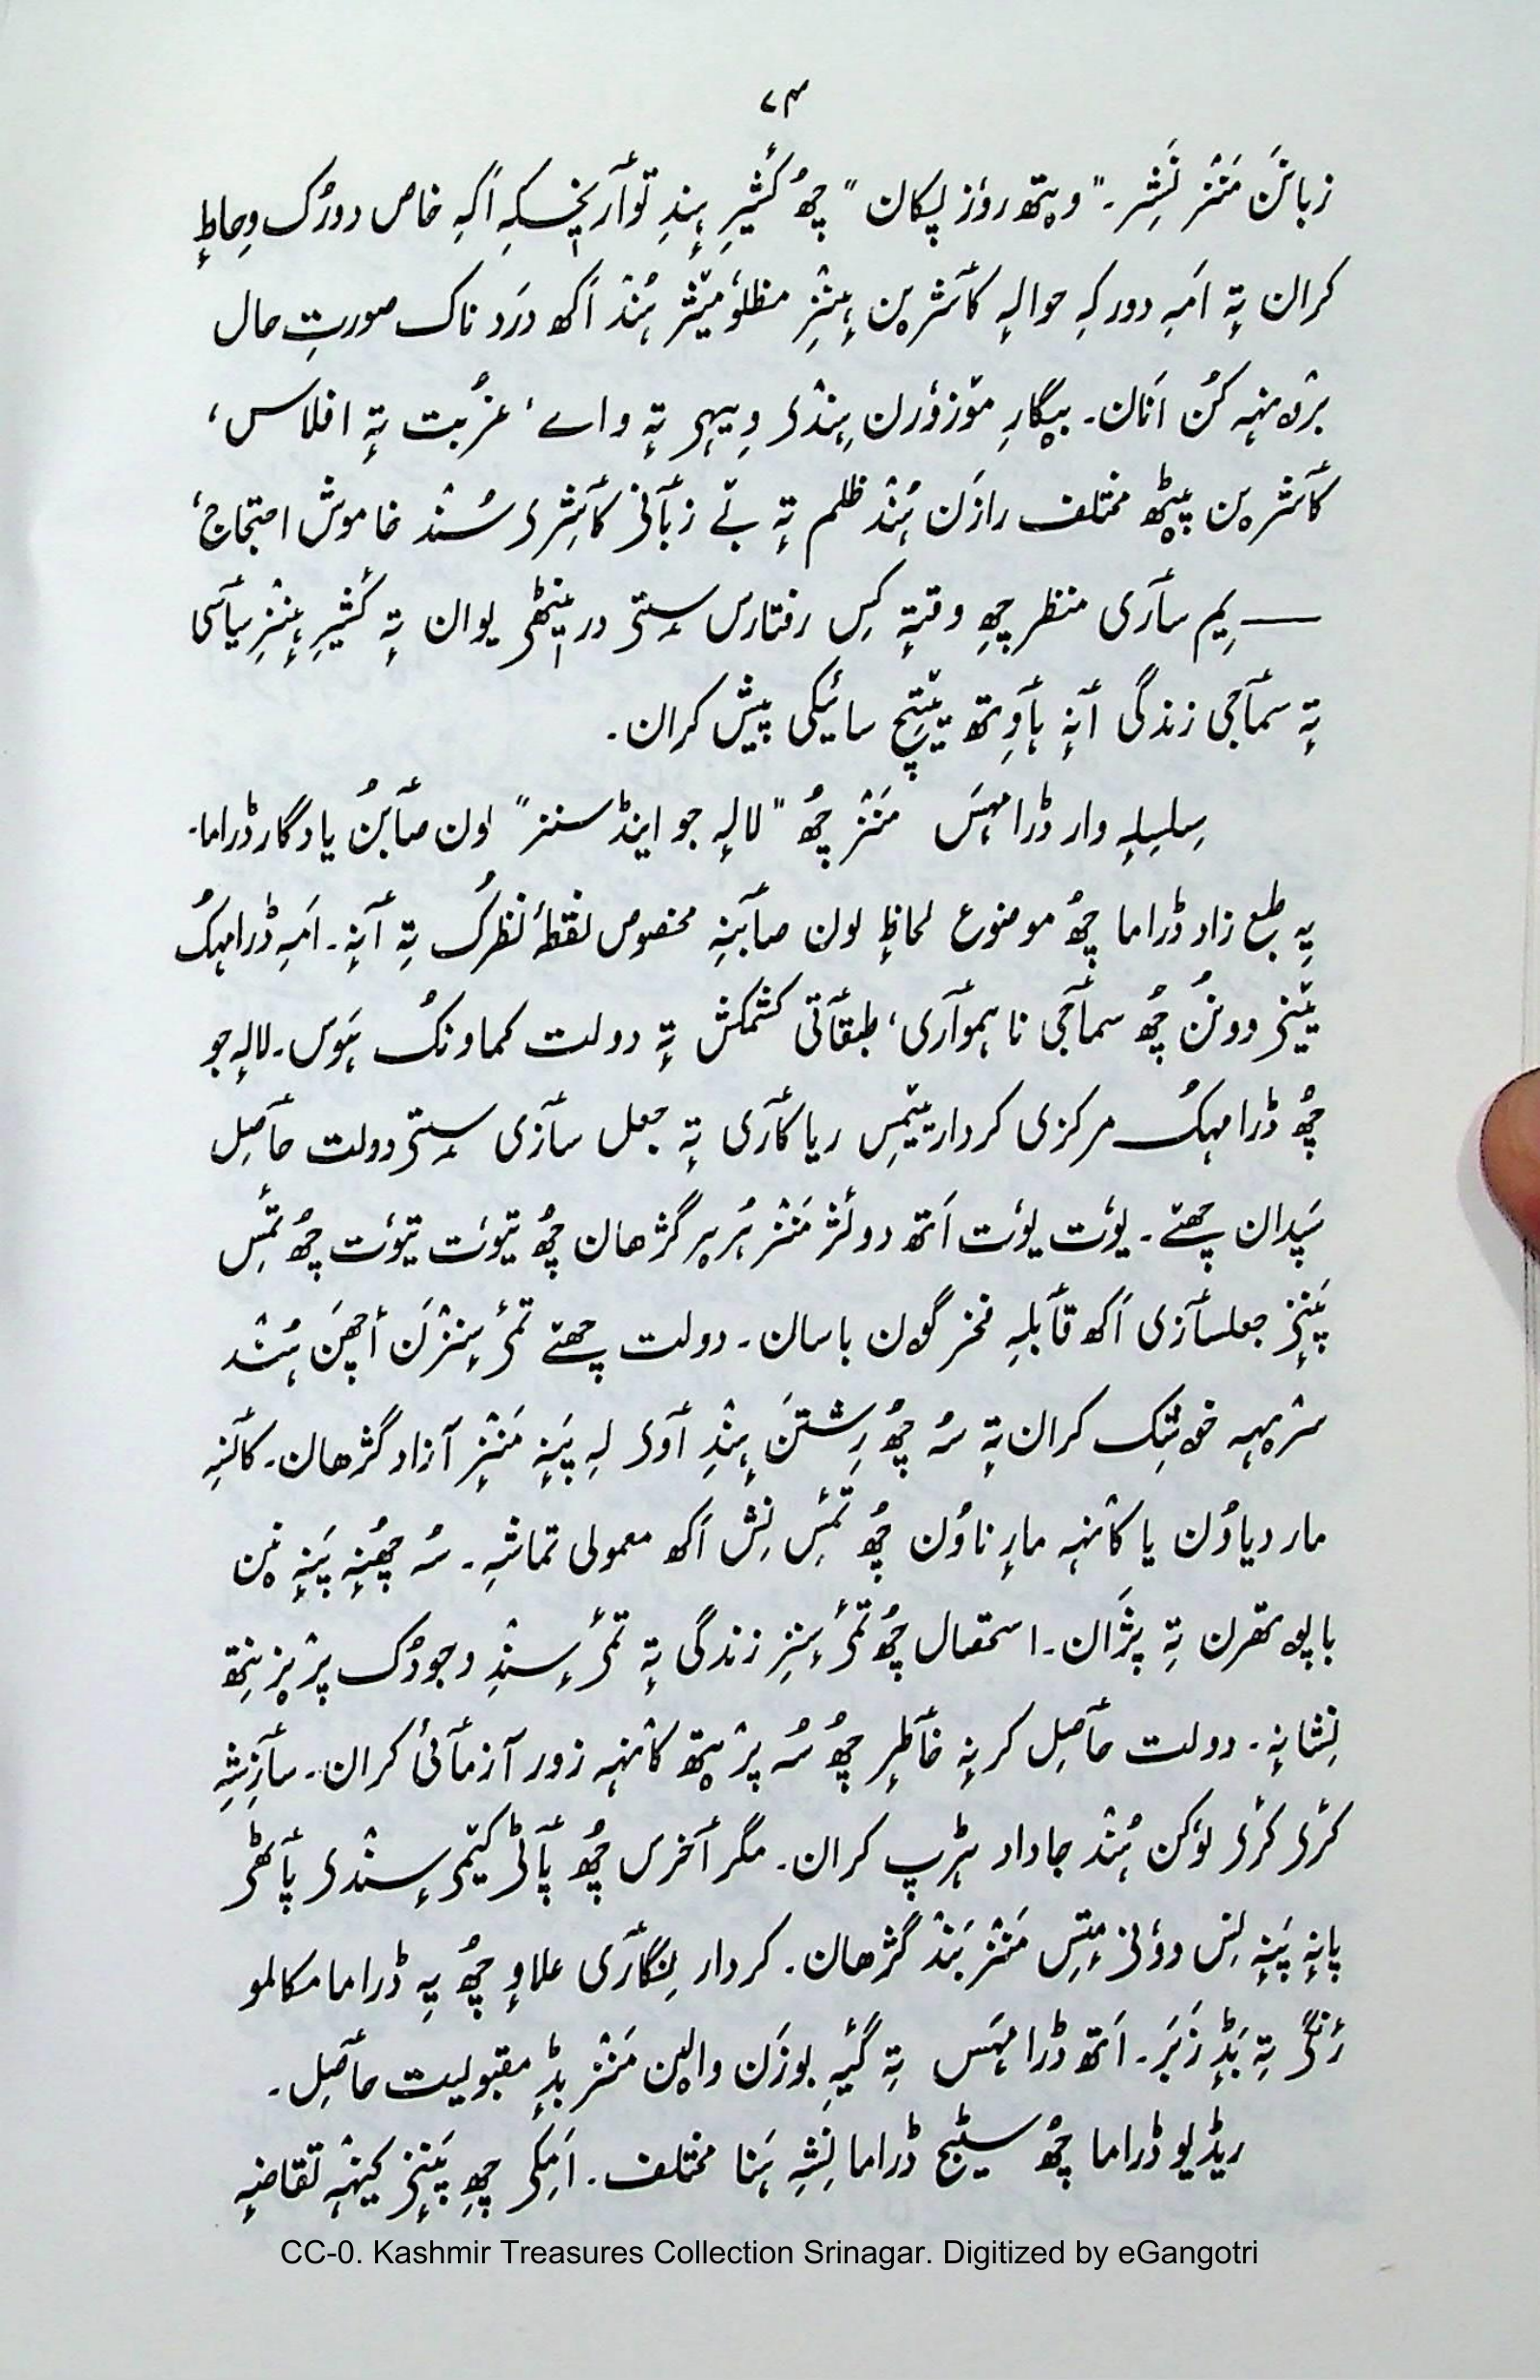 ۷۴
زبانَن مَنٛز نَشِر۔ "ویتھ روٗز پکان" چھُ کٔشیٖرِ ہٕنٛدِ توٲریٖخکہِ اَکہِ خاص دورُک وِحاطہٕ
کران تہٕ اَمہِ دورکہِ حوالہٕ کٲشرٮ۪ن ہٕنٛزِ مظلوٗمیٔژ ہُنٛد اَکھ دَرد ناک صورتِ حال
برٛونٛہہ کُن اَنان۔ بیگارِ موٚزوٗرن ہٕنٛدۍ وٕیہۍ تہٕ واے، غُربت تہٕ افلاس،
کٲشرٮ۪ن پیٹھ مختلف رازَن ہُنٛد ظلم تہٕ بے زبٲنۍ کٲشِرۍ سُنٛد خاموش احتجاج،
— یِم سٲری منظر چھِ وقتہٕ کِس رفتارس سٟتۍ در ینٹھۍ یوان تہٕ کٔشیٖرِ ہٕنٛزِ سیٲسی
تہٕ سمٲجی زندگی آنہٕ ہٲوِتھ پٔتِچ سائیکی پیش کران۔
سِلسِلہٕ وار ڈراہَس مَنٛز چھُ "لالہٕ جو اینڈ سنز" لون صٲبُن یادگار ڈراما۔
یہِ طبع زاد ڈراما چھُ موضوع لحاظہٕ لون صٲبنہِ مخصوص نقطۂ نظرُک تہِ آنہٕ۔ اَمہِ ڈرامہُک
بُنیٲدی ووٚنُن چھُ سمٲجی نا ہموٲری، طبقٲتی کشمکش تہٕ دولت کماونُک ہَوَس۔ لالہٕ جو
چھُ ڈرامہُک مرکزی کردار یٔمِس ریاکٲری تہٕ جعل سٲزی سٟتۍ دولت حٲصِل
سَپدان چھےٚ۔ یوٗت یوٗت اَتھ دولتَس مَنٛز ہُرٮ۪ر گژھان چھُ تیوٗت تیوٗت چھُ تٔمِس
پَنٕنۍ جعلسٲزی اَکھ قٲبلہِ فخر گۄن باسان۔ دولت چھےٚ تٔمۍ سٕنٛزَن أچھَن ہُنٛد
سرٛیہہ خۄشک کران تہٕ سُہ چھُ رِشتَن ہٕنٛدِ آوٕ لہِ پَنہٕ مَنٛزٕ آزاد گژھان۔ کٲنٛسہِ
مار دیاوُن یا کانٛہہ مارٕناوُن چھُ تٔمِس نِش اَکھ معمولی تماشہٕ۔ سُہ چھُنہٕ پَنٕنٮ۪ن
باپوتھرن تہِ پژان۔ استحصال چھُ تٔمۍ سٕنٛزِ زندگی تہٕ تٔمۍ سٕنٛدِ وجودُک پرٛزنتھ
نِشانہٕ۔ دولت حٲصِل کرنہٕ خٲطرٕ چھُ سُہ پرٛیتھ کانٛہہ زور آزمٲئی کران۔ سٲزِشہٕ
کٔرۍ کٔرۍ لوٗکن ہُنٛد جاداد ہڑپ کران۔ مگر آخرس چھُ پٲٹۍ کیٚمۍ سٕنٛدۍ پٲٹھۍ
پانہٕ پَنٕنِس ووٗنۍمٕتِس مَنٛز بَنٛد گژھان۔ کردار نِگٲری علاوٕ چھُ یہِ ڈراما مکالمو
رنٛگۍ تہِ بَڈٕ زَبَر۔ اَتھ ڈرامہَس تہِ گیہِ بوزَن والٮ۪ن مَنٛز بڈٕ مقبولیت حٲصِل۔
ریڈیو ڈراما چھُ سٹیج ڈراما نِشہِ ہَنا مختلف۔ اَمِکۍ چھِ پَنٕنۍ کینٛہہ تقاضہٕ
CC-0. Kashmir Treasures Collection Srinagar. Digitized by eGangotri